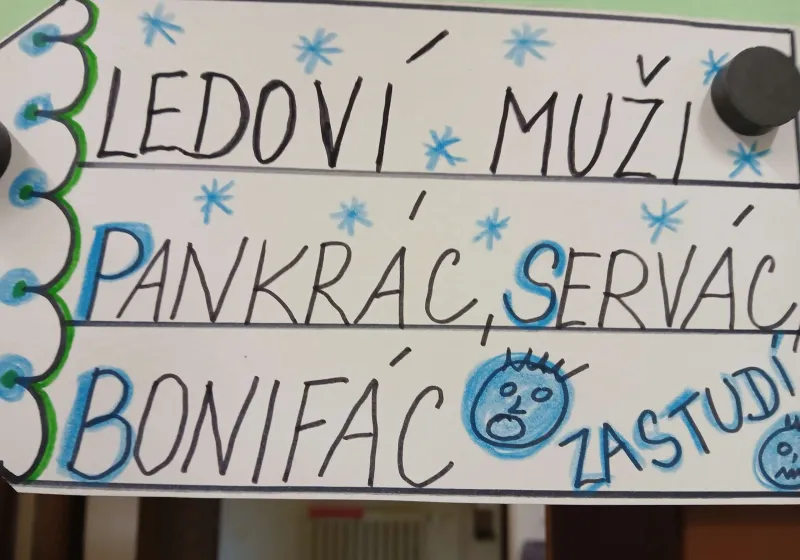 LEDOVÍ MUŽI
PANKRÁC, SERVÁC,
BONIFÁC ZASTUDÍ